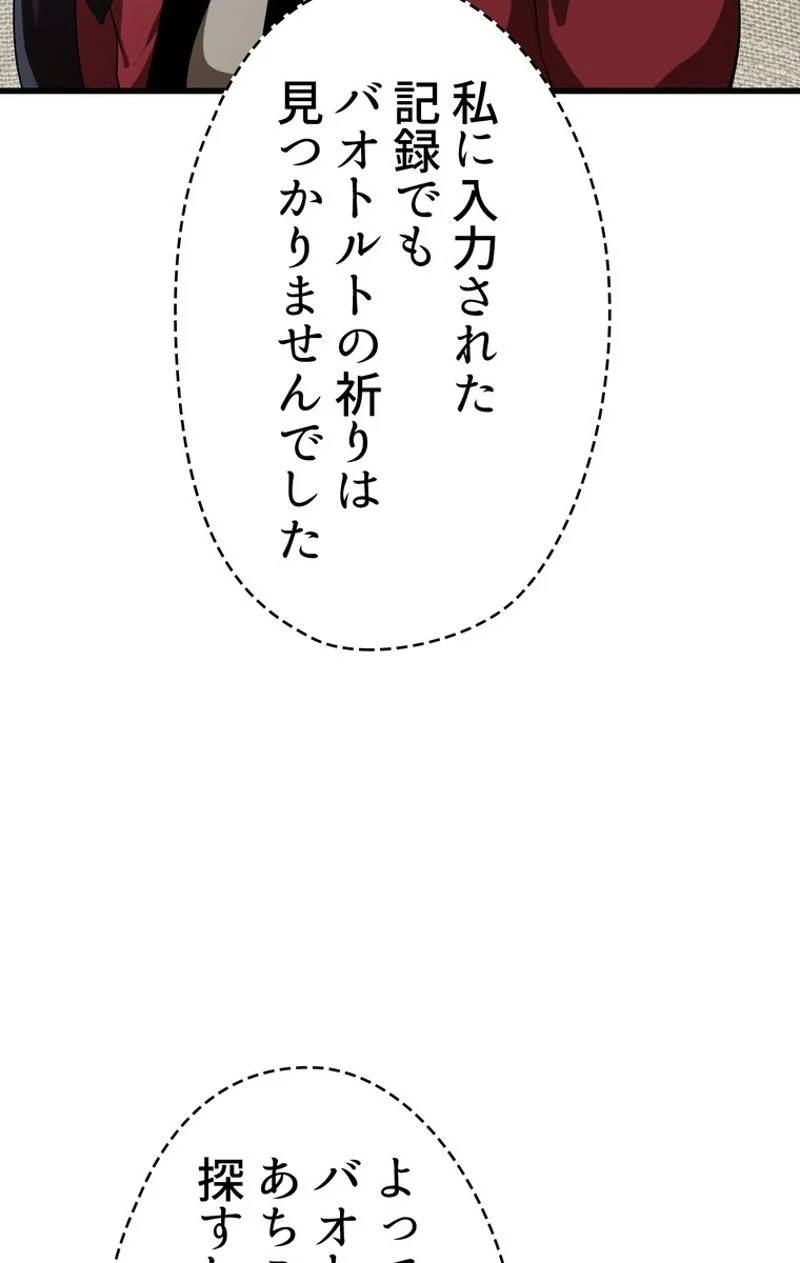 私に入力された
記録でも
バオトルトの祈りは
見つかりませんでした
よって
バオ
あち
探す